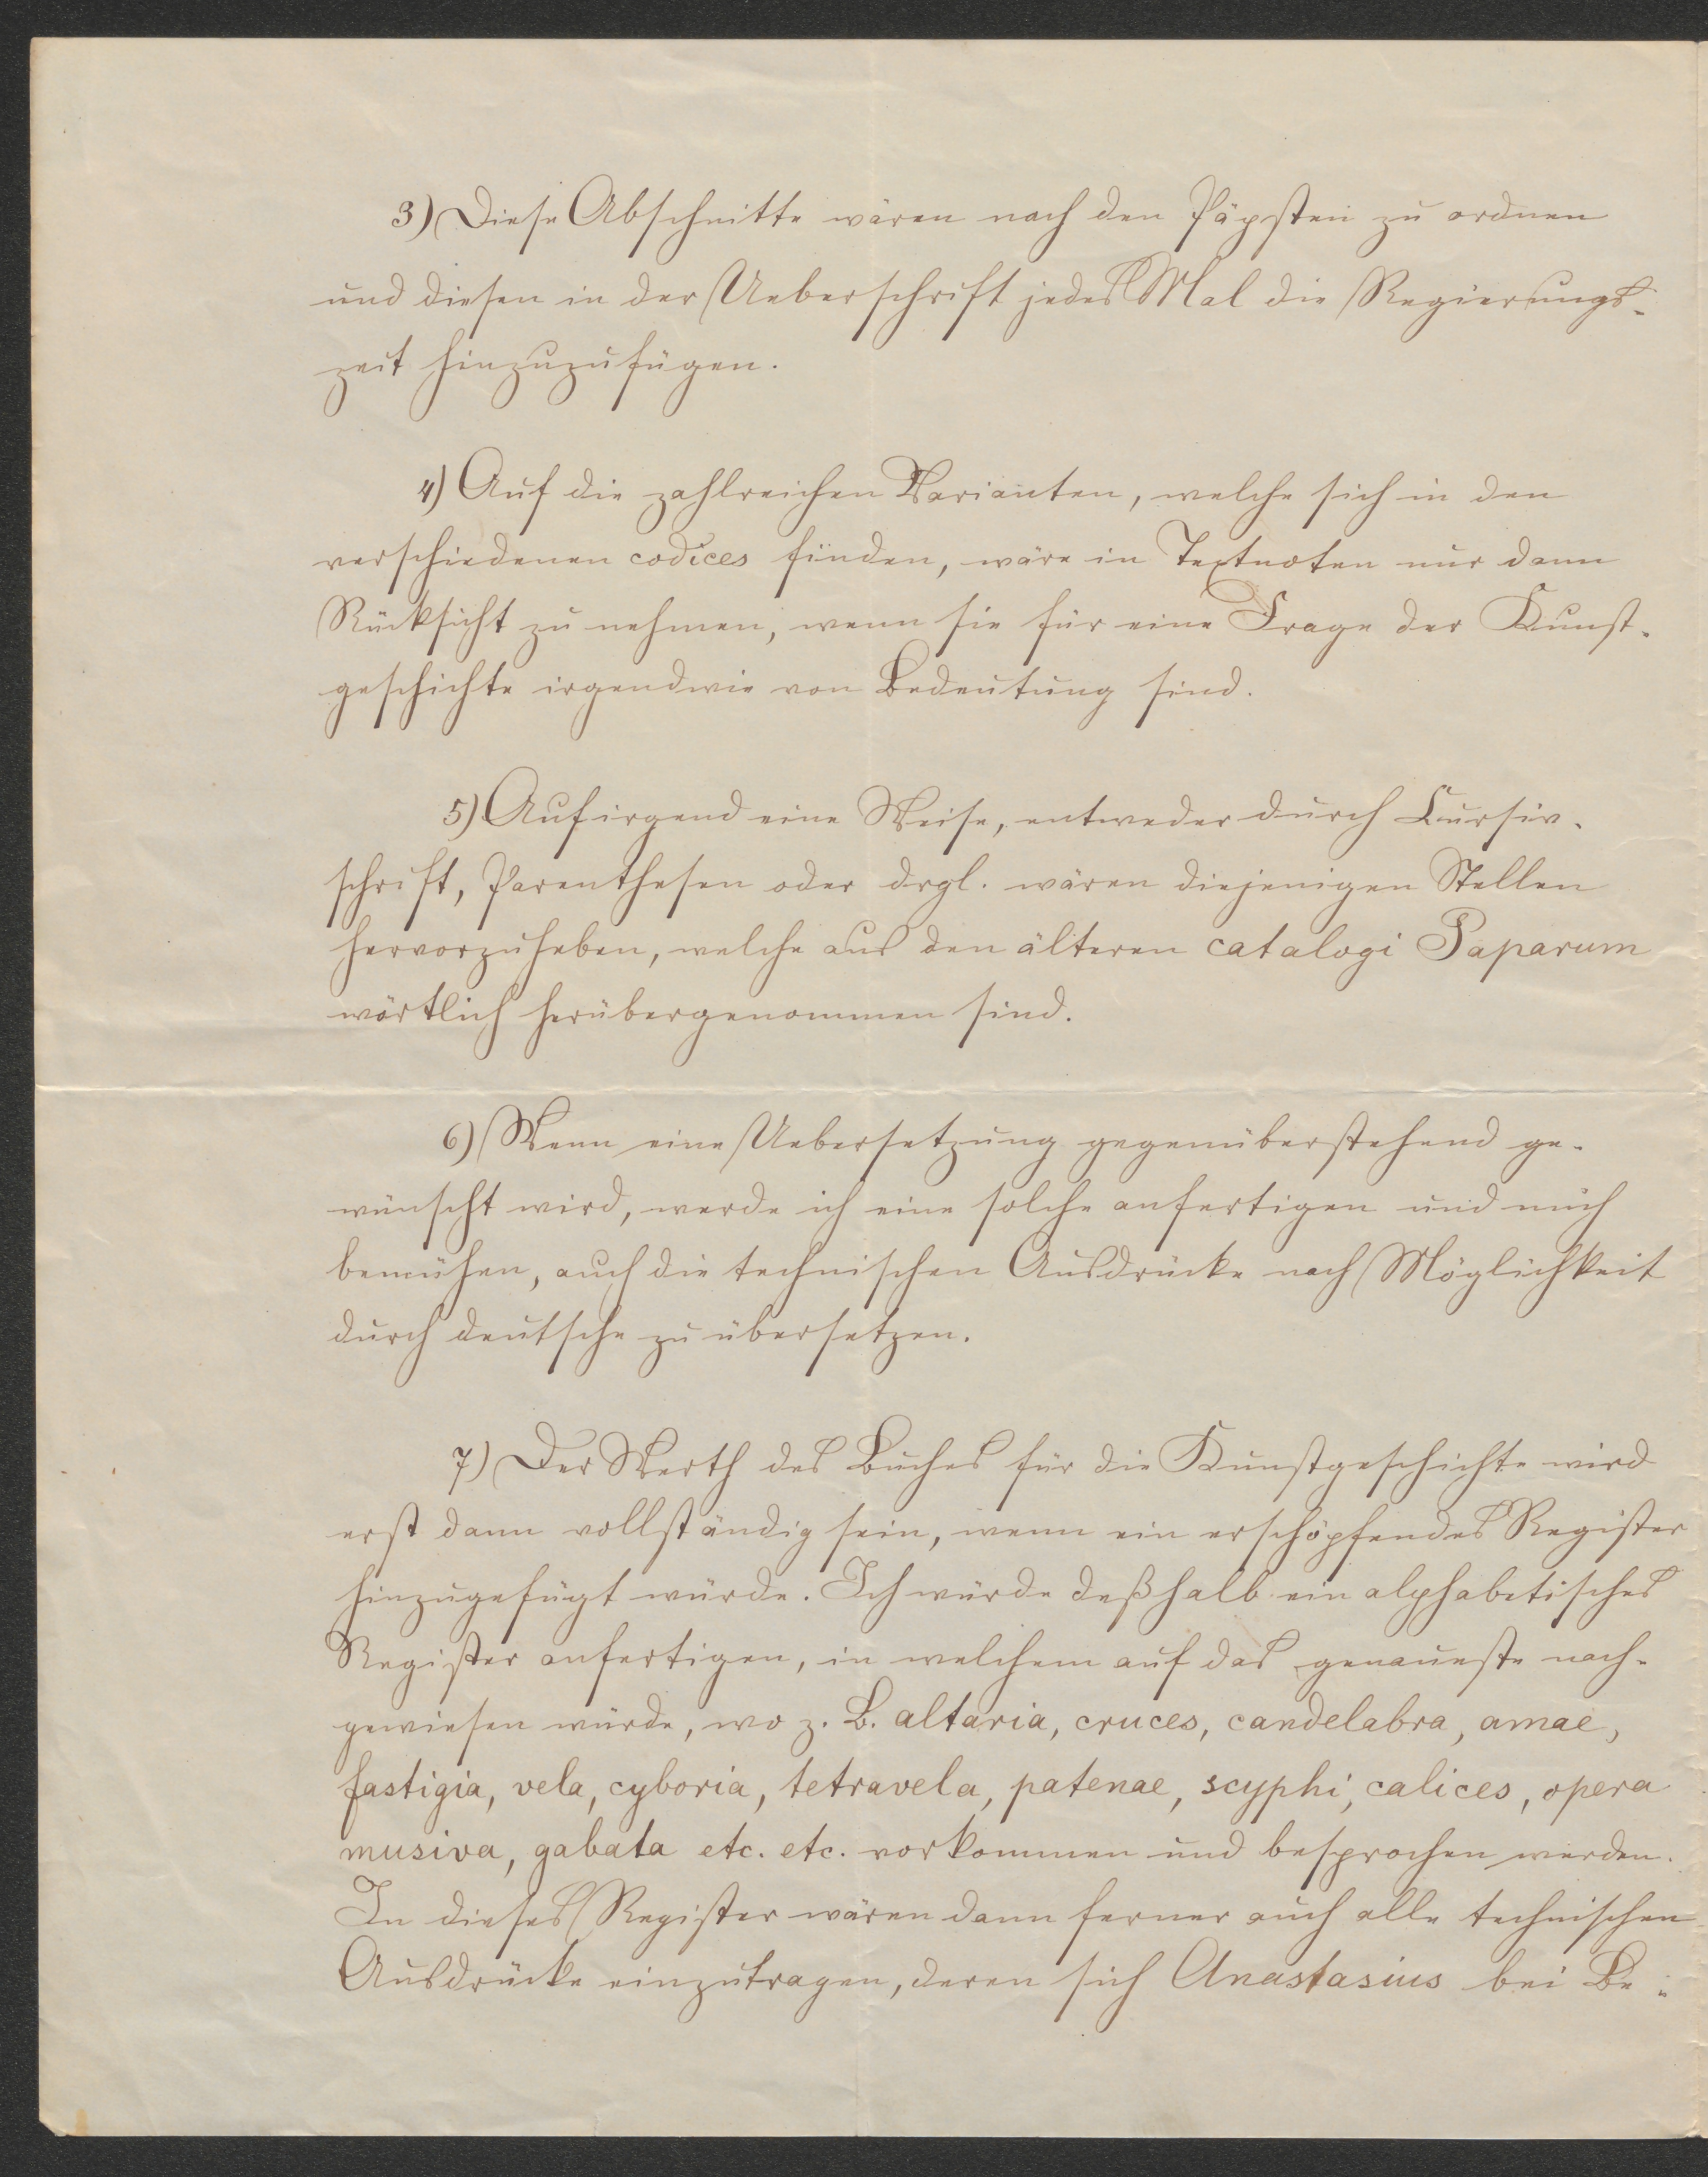 3) Diese Abschnitte wären nach den Päpsten zu ordnen
und diesen in der Ueberschrift jedes Mal die Regierungs-
zeit hinzuzufügen.
4) Auf die zahlreichen Varianten, welche sich in den
verschiedenen codices finden, wäre in Textnoten nur dann
Rücksicht zu nehmen, wenn sie für eine Frage der Kunst-
geschichte irgendwie von Bedeutung sind.
5) Auf irgend eine Weise, entweder durch Cursiv-
schrift, Parenthesen oder drgl. wären diejenigen Stellen
hervorzuheben, welche aus den älteren catalogi Paparum
wörtlich herübergenommen sind.
6) Wenn eine Uebersetzung gegenüberstehend ge-
wünscht wird, werde ich eine solche anfertigen und mich
bemühen, auch die technischen Ausdrücke nach Möglichkeit
durch deutsche zu übersetzen.
7) Der Werth des Buches für die Kunstgeschichte wird
erst dann vollständig sein, wenn ein erschöpfendes Register
hinzugefügt würde. Ich würde deßhalb ein alphabetisches
Register anfertigen, in welchem auf das genaueste nach-
gewiesen würde, wo z. B. altaria, cruces, candelabra, amae,
fastigia, vela, cyboria, tetravela, patenae, scyphi, calices, opera
musiva, gabata etc. etc. vorkommen und besprochen werden.
In dieses Register wären dann ferner auch alle technischen
Ausdrücke einzutragen, deren sich Anastasius bei Be-